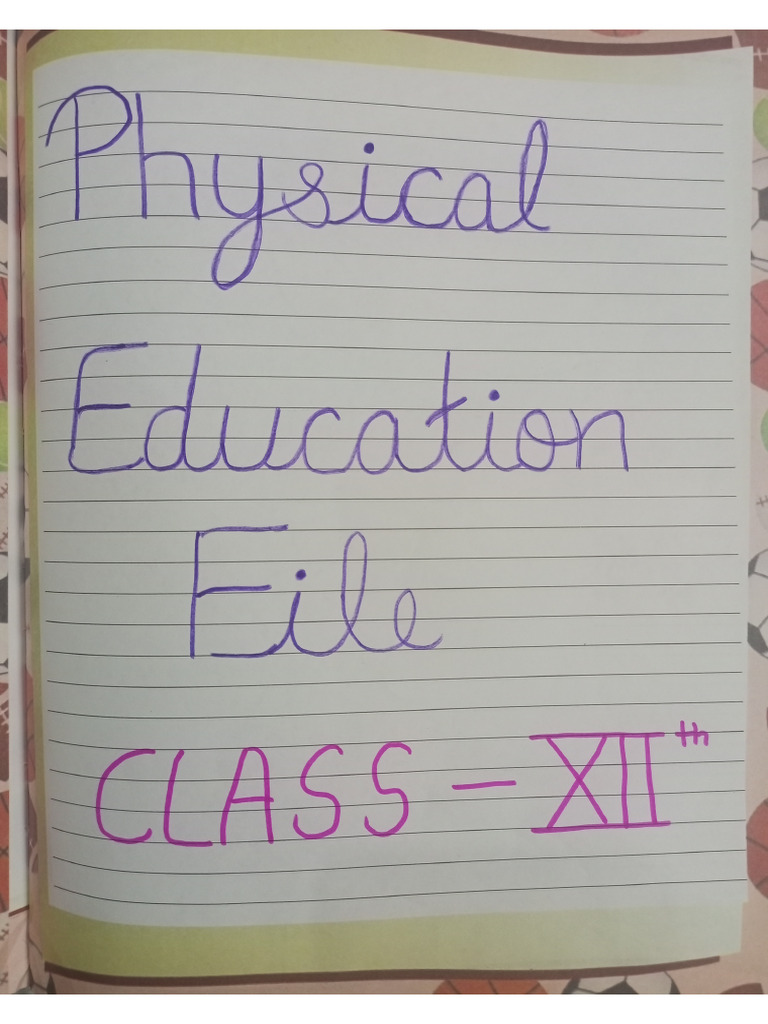 Physical
Education
File
CLASS - XII th